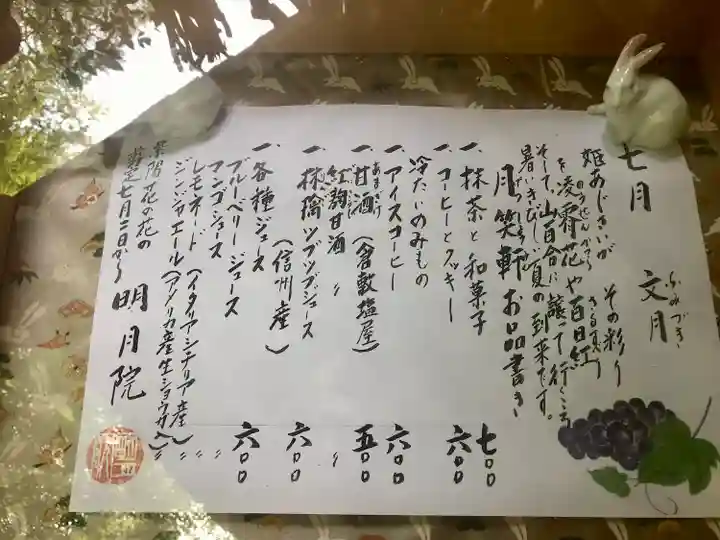 七月 文月
ふみづき
姫あじさいが その彩り
を凌霄花や百日紅
のうぜんかずら さるすべり
そして山百合に譲って行くころ
暑さきびしい夏の到来です。
月笑軒 お品書き
一、抹茶と和菓子 七〇〇
一、コーヒーとクッキー 六〇〇
冷たいのみもの
一、アイスコーヒー 六〇〇
一、甘酒(倉敷塩屋) 五〇〇
あまざけ
紅麹甘酒 〃 〃
一、林檎ツブツブジュース 六〇〇
(信州産)
一、各種ジュース 六〇〇
ブルーベリージュース 〃
マンゴジュース 〃
レモネード(イタリアシチリア産) 〃
ジンジャエール(アメリカ産生ショウガ入) 〃
七月二日から 明月院